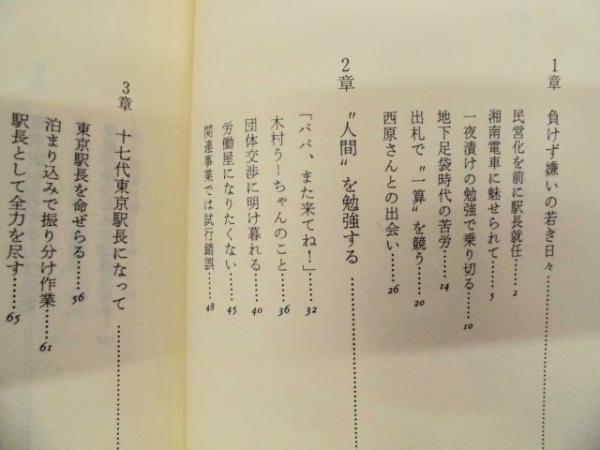 1章 負けず嫌いの若き日々……
民営化を前に駅長就任……2
湘南電車に魅せられて……5
一夜漬けの勉強で乗り切る……10
地下足袋時代の苦労……14
出札で〝一算〟を競う……20
西原さんとの出会い……26
2章 〝人間〟を勉強する……
「パパ、また来てね！」……32
木村うーちゃんのこと……36
団体交渉に明け暮れる……40
労働屋になりたくない……45
関連事業では試行錯誤……48
3章 十七代東京駅長になって……
東京駅長を命ぜらる……56
泊まり込みで振り分け作業……61
駅長として全力を尽す……65